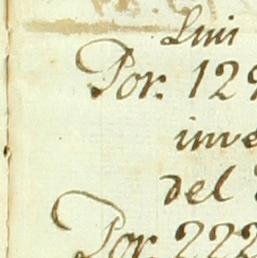 Luis
Por. 129
inve
del
Por. 222